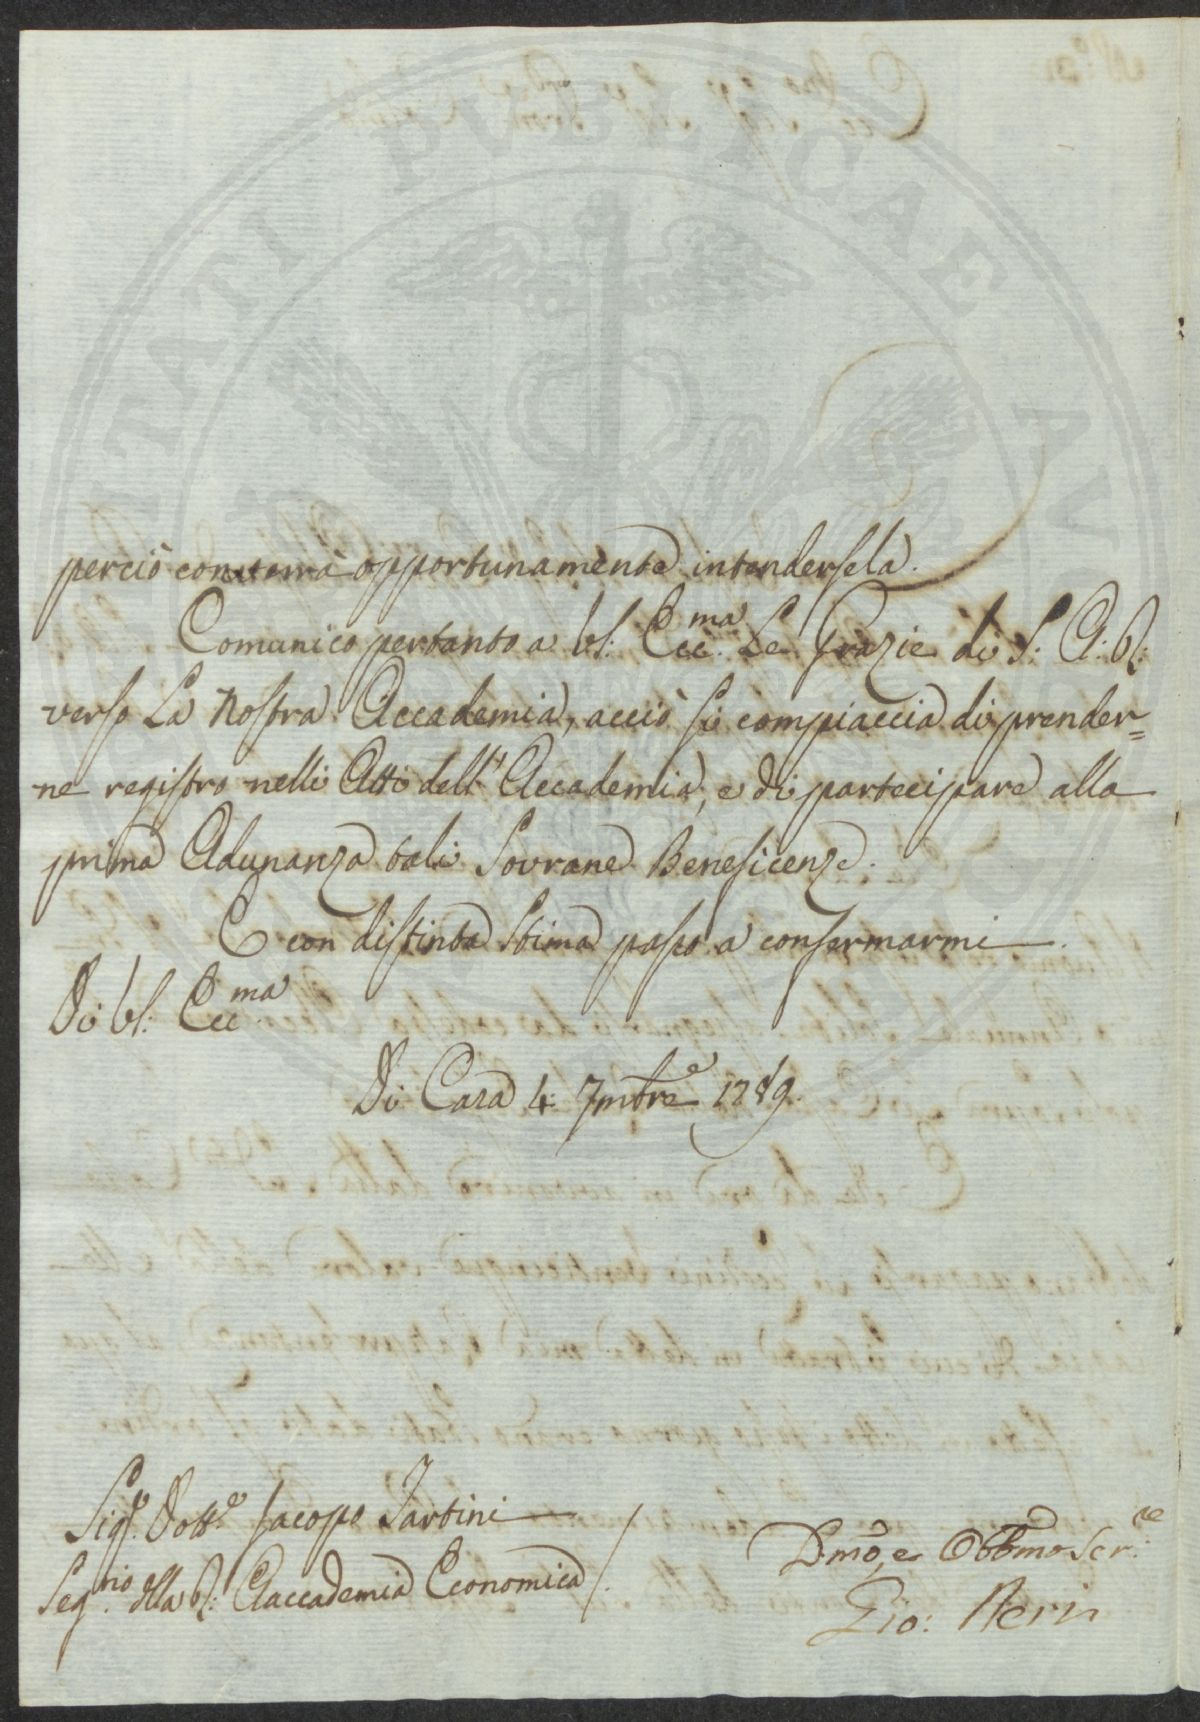 perciò converrà opportunamente intendersela.
Comunico pertanto a VS: Ecc.ma Le Grazie di S: A: R:
verso La Nostra Accademia, acciò si compiaccia di prender=
ne registro nelli Atti dell' Accademia, e di partecipare alla
prima Adunanza tali Sovrane Beneficenze.
E con distinta Stima passo a confermarmi
Di VS: Ecc.ma
Di Casa 4: 7mbre 1789.
Sig.r Dott.e Jacopo Tartini
Seg.rio della R: Aaccademia Economica
D.mo, e Obb.mo Ser.re
Gio: Neri
PUBLICAE